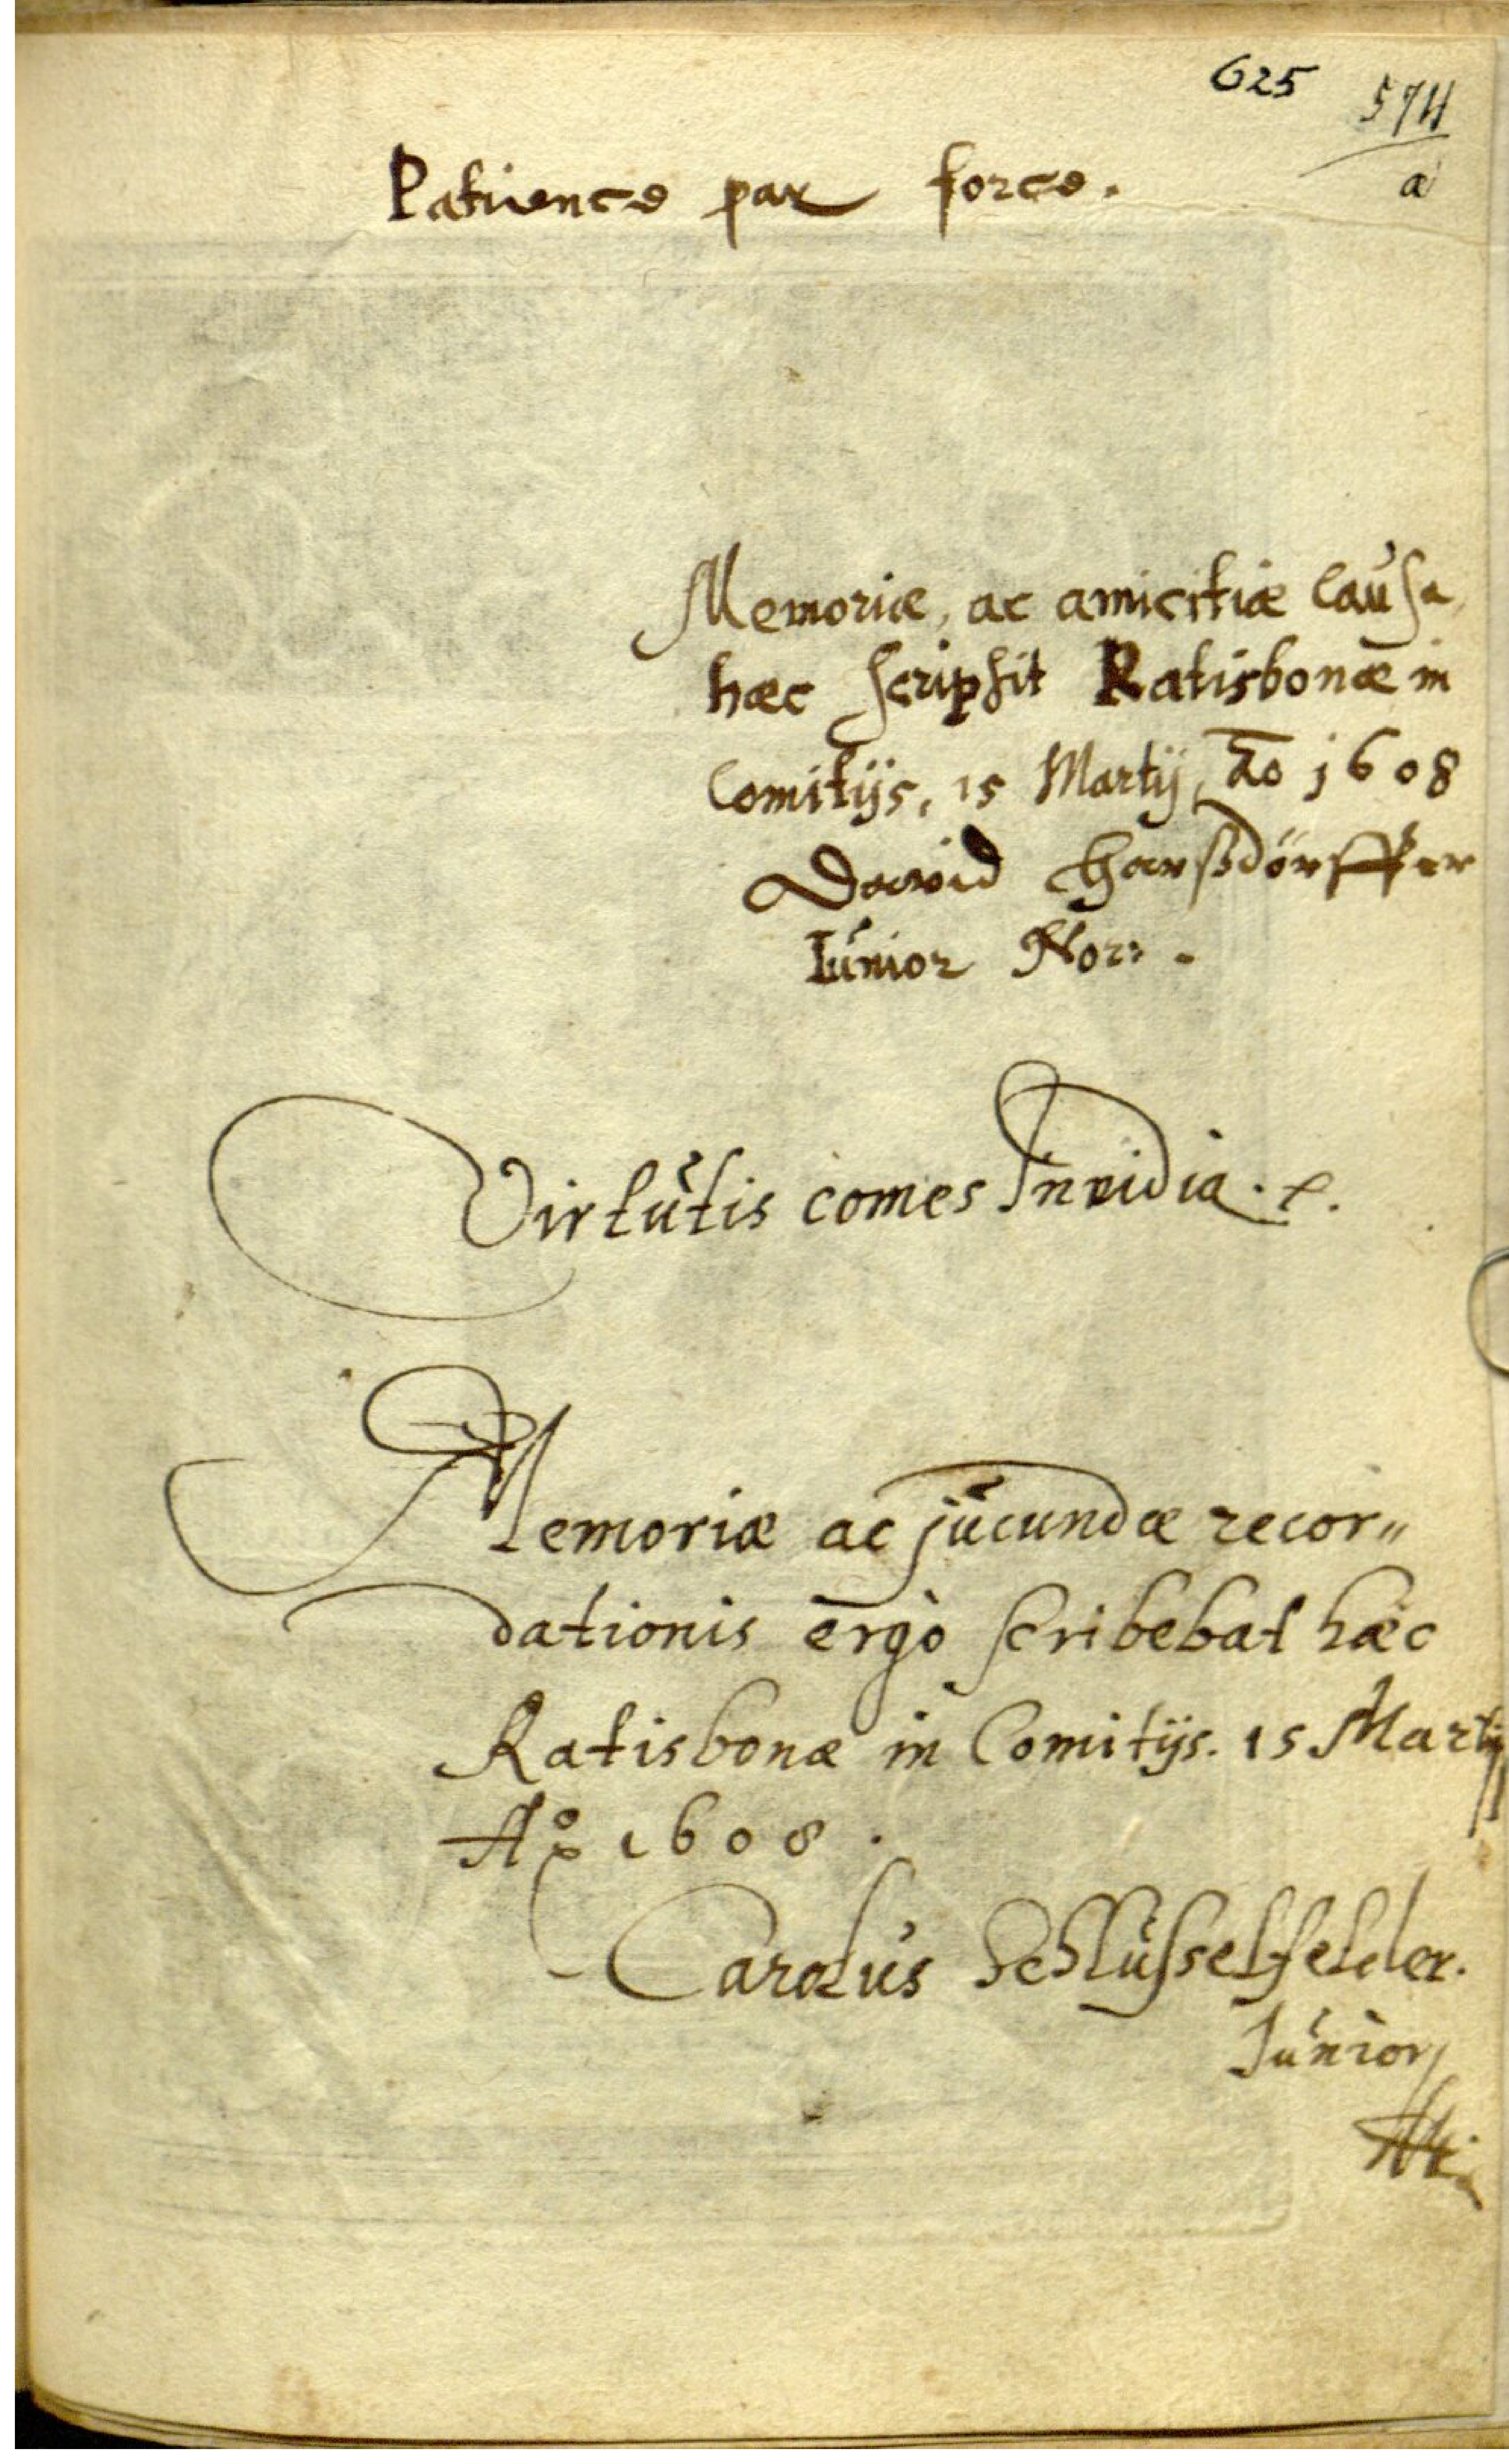 625
574
a
Patience par force.
Memoriæ, ac amicitiæ causa
hæc scripsit Ratisbonæ in
Comitijs, 15 Martij, Ao 1608
David Harßdörffer
Iunior Nor:.
Virtutis comes Invidia.
Memoriæ ac jucundæ recor„
dationis ergò scribebat hæc
Ratisbonæ in Comitijs. 15 Martij
Ao 1608.
Carolus Schlüsselfelder.
Junior